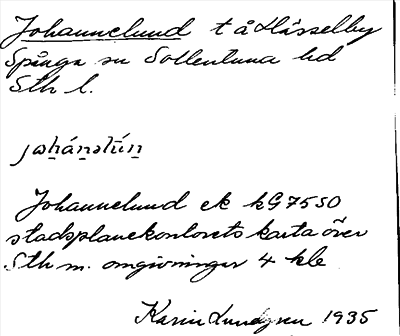 Johannelund t å Hässelby
Spånga sn Sollentuna hd
Sth l.
Johannelund ek kG 7550
stadsplanekontorets karta över
Sth m. omgivningar 4 kle
Karin Lundgren 1935